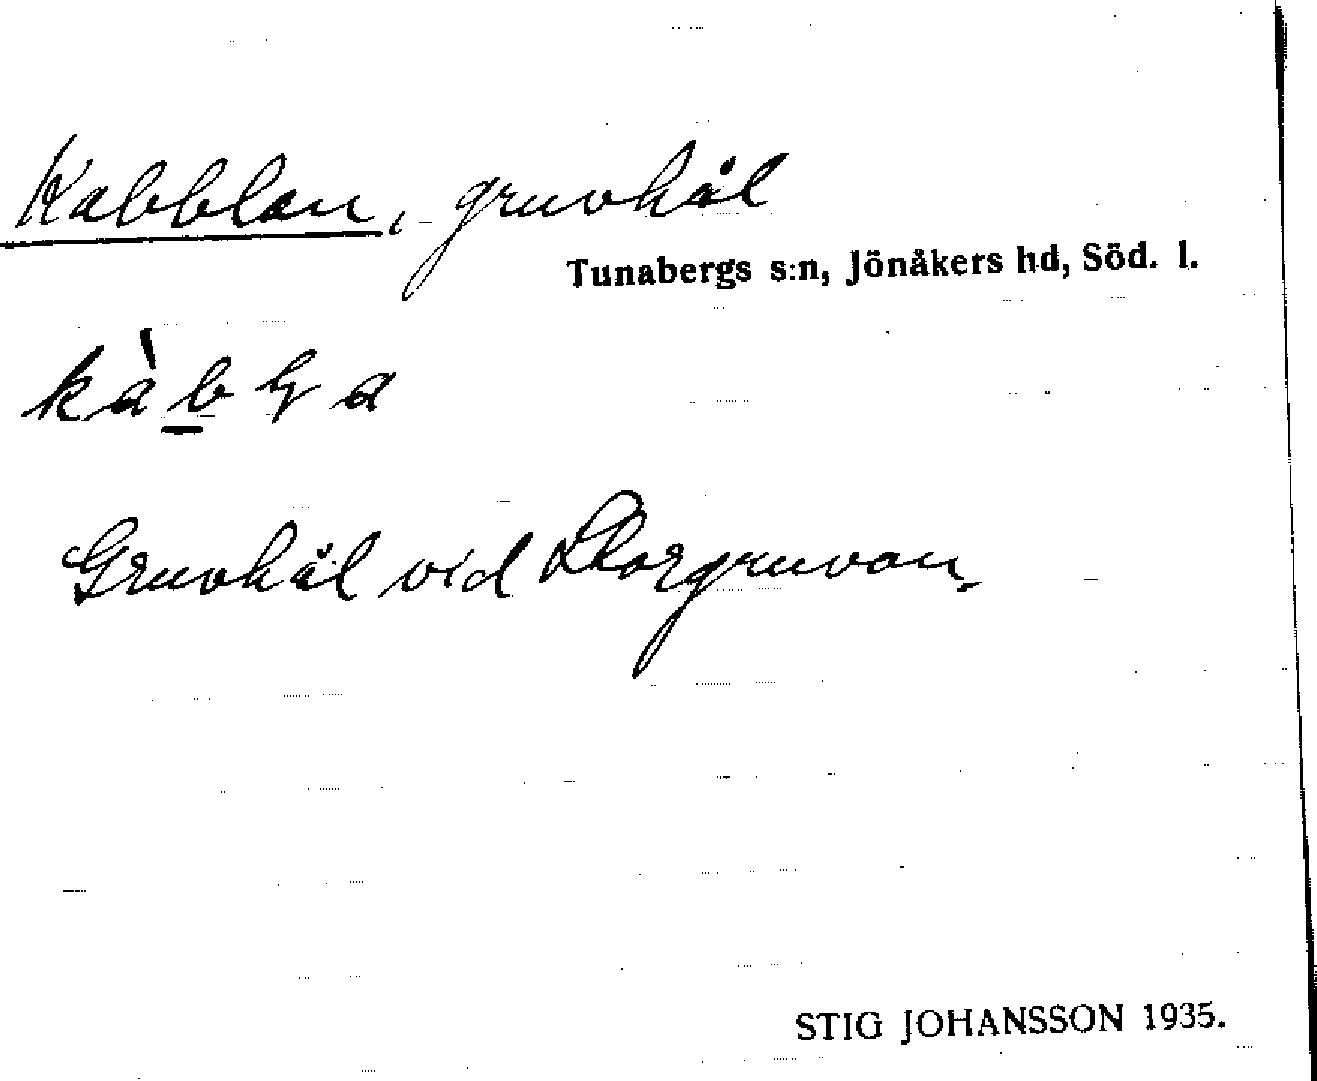 Kabblan, gruvhål
Tunabergs s:n, Jönåkers hd, Söd. l.
Gruvhål vid Storgruvan.
STIG JOHANSSON 1935.